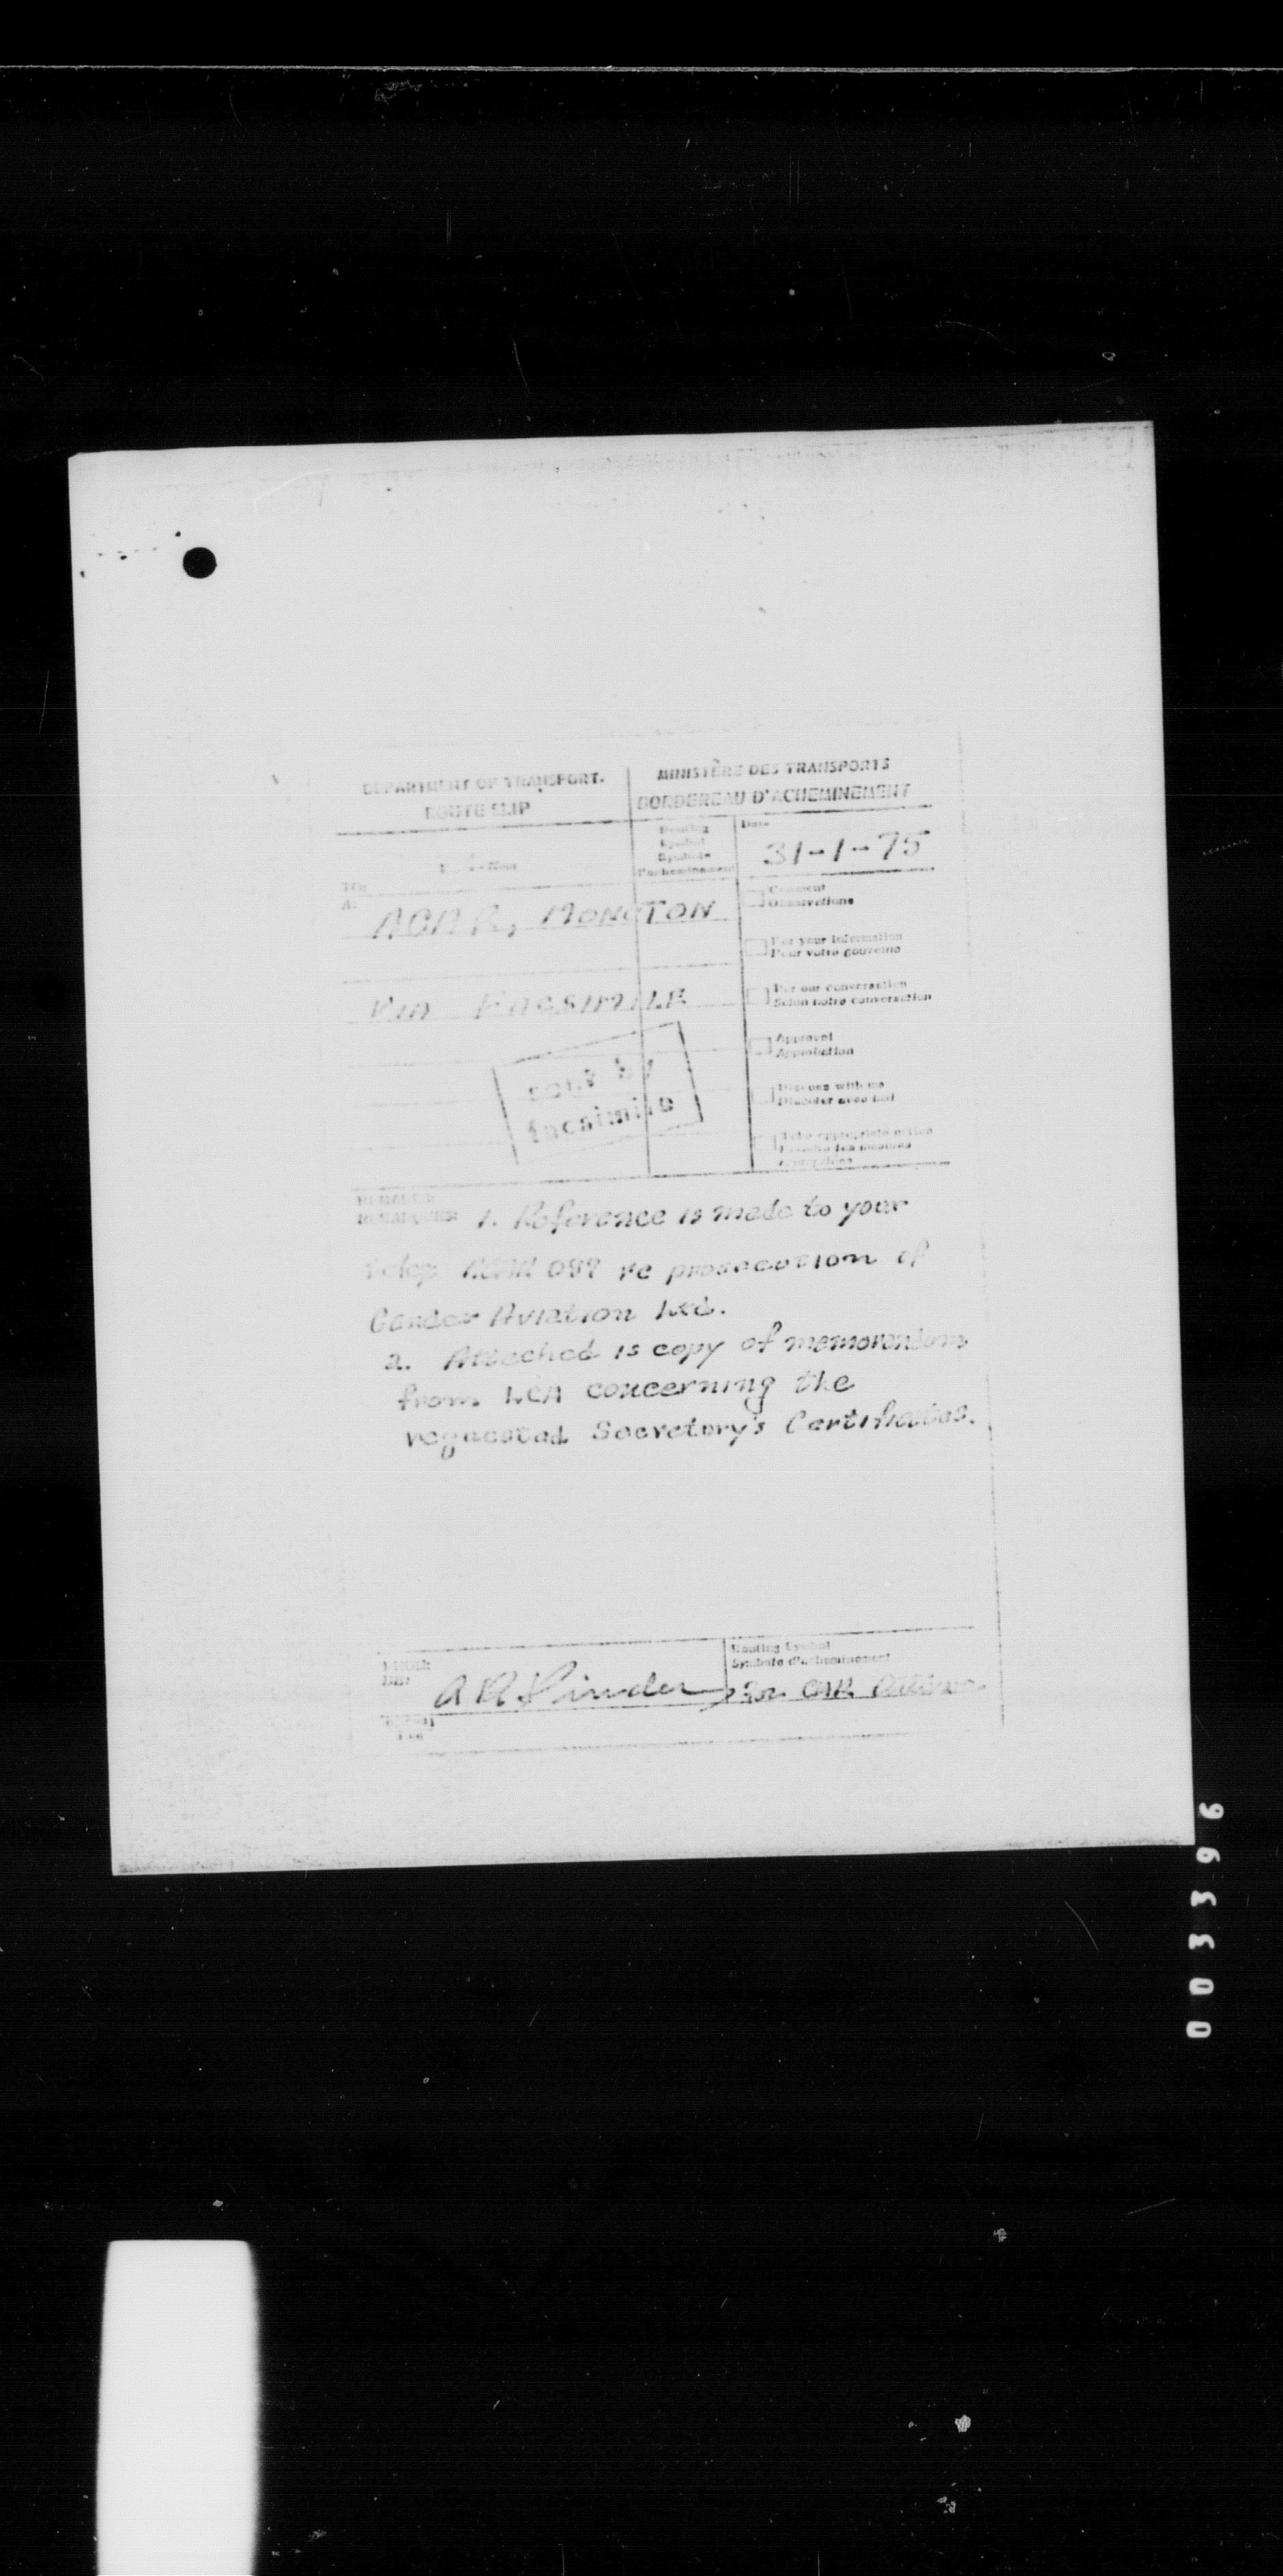 DEPARTMENT OF TRANSPORT.
ROUTE SLIP
MINISTÈRE DES TRANSPORTS
BORDEREAU D'ACHEMINEMENT
Routing
Symbol
Symbole
d'acheminement
Date
31-1-75
TO:
A:
ACAR, MONCTON
VIA FACSIMILE
sent by
facsimile
Comment
Observations
For your information
Pour votre gouverne
Per our conversation
Selon notre conversation
Approval
Approbation
Discuss with me
Discuter avec moi
Take appropriate action
Prendre les mesures
appropriées
REMARKS:
REMARQUES:
1. Reference is made to your
re prosecution of
Gander Aviation Ltd.
2. Attached is copy of memorandum
from LCA concerning the
requested Secretary's Certificates.
FROM:
DE:
A R Pinder
Routing Symbol
Symbole d'acheminement
for CAR Ottawa
003396